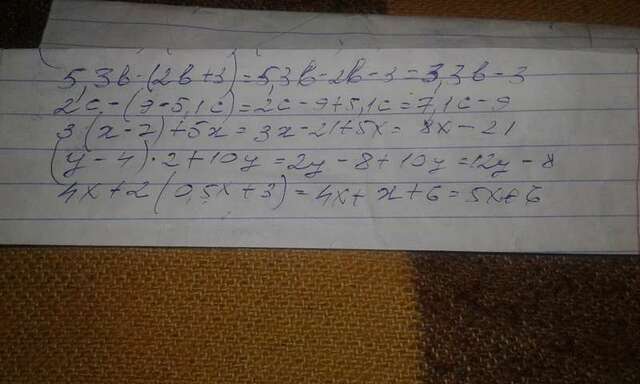 5,3b-(2b+3)=5,3b-2b-3=3,3b-3
2c-(9-5,1c)=2c-9+5,1c=7,1c-9
3(x-7)+5x=3x-21+5x=8x-21
(y-4)·2+10y=2y-8+10y=12y-8
4x+2(0,5x+3)=4x+x+6=5x+6